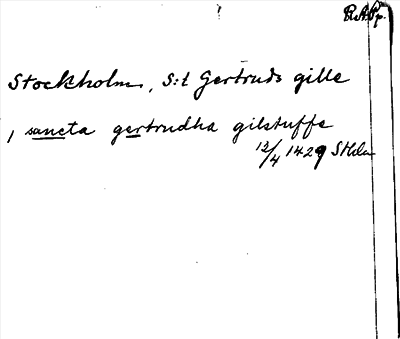 RAPp.
Stockholm, S:t Gertruds gille
, sancta gertrudha gilstuffe
12/4 1429 Sthlm